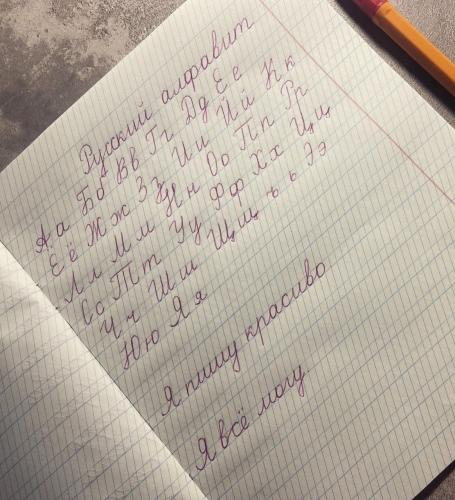 Русский алфавит
Аа Бб Вв Гг Дд Ее
Её Жж Зз Ии Йй Кк
Лл Мм Нн Оо Пп Рр
Сс Тт Уу Фф Хх Цц
Чч Шш Щщ ъ ь Ээ
Юю Яя
Я пишу красиво
Я всё могу